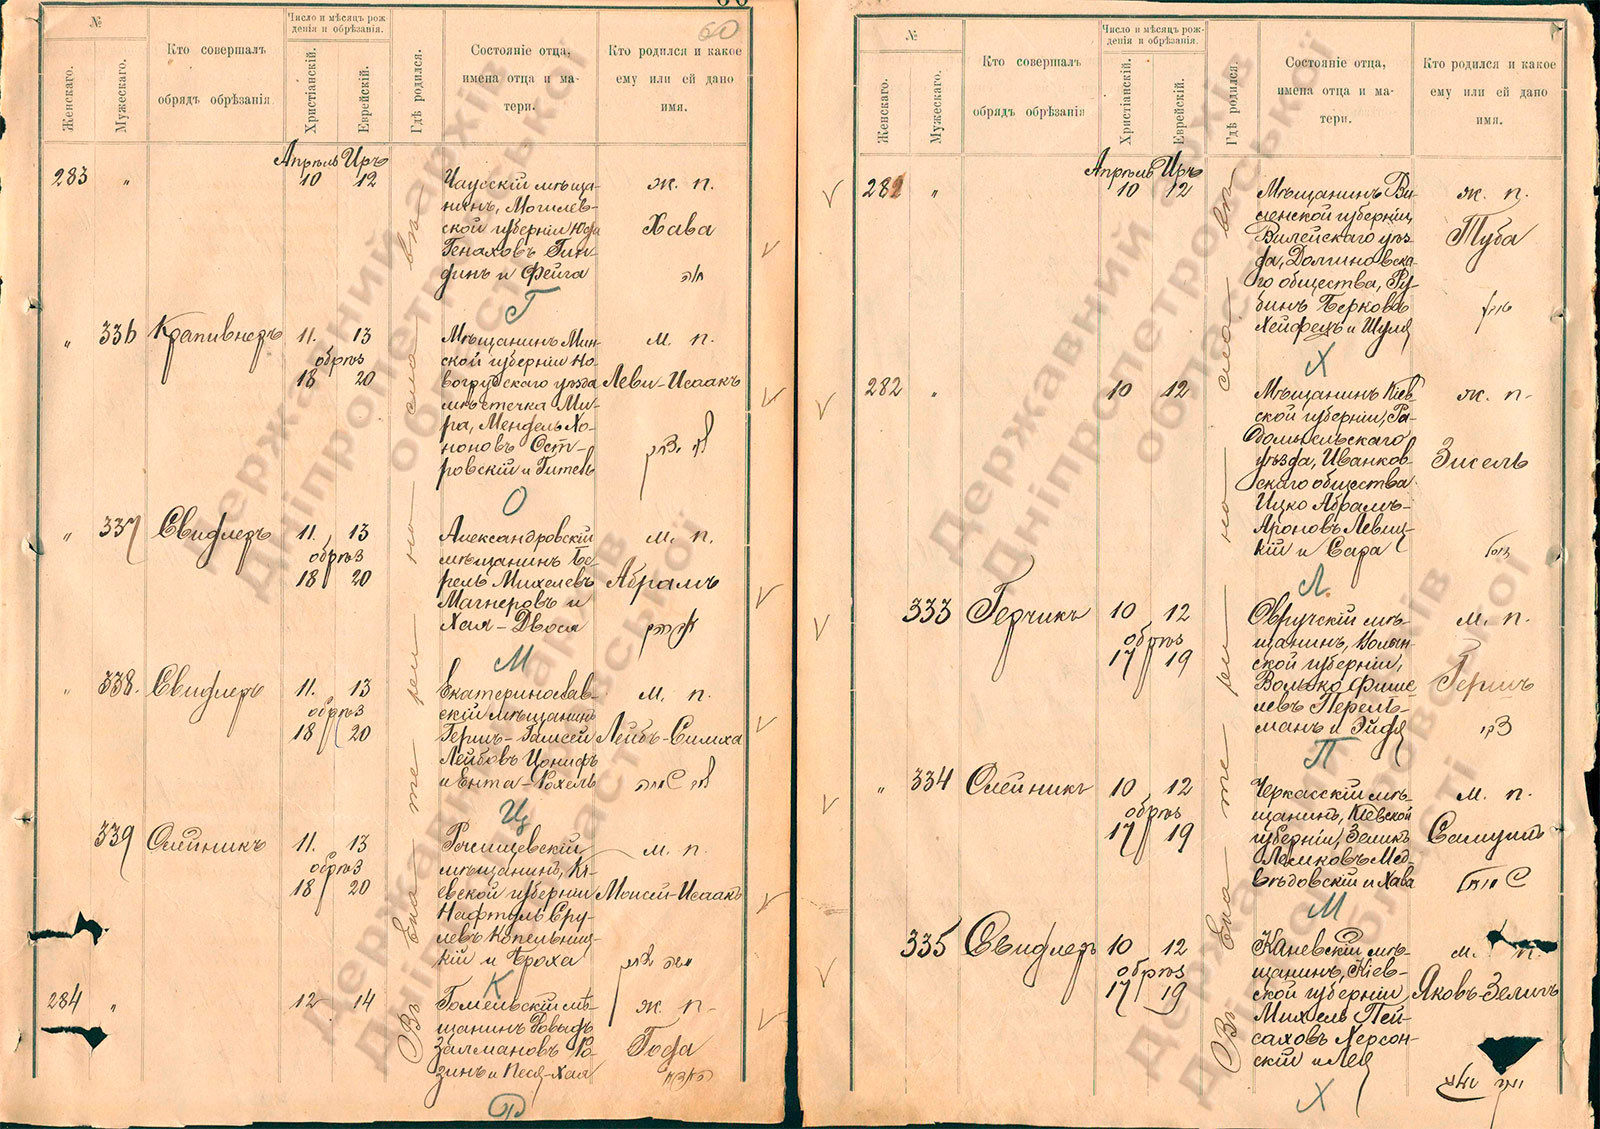 60
№
Женскаго.
Мужескаго.
Кто совершалъ
обрядъ обрѣзанія
Число и мѣсяцъ рож
денія и обрѣзанія.
Христіанскій.
Еврейскій.
Гдѣ родился.
Состояніе отца,
имена отца и ма-
тери.
Кто родился и какое
ему или ей дано
имя.
Въ Ека те ри но сла вѣ
283 „
Апрѣль Иръ
10 12
Чаусскій мѣща-
нинъ, Могилев-
ской губерніи Юда
Генаховъ Гин-
динъ и Фейга
Г
ж. п.
Хава
חוה
„ 336 Крапивнеръ
11. 13
обрѣз
18 20
Мѣщанинъ Мин-
ской губерніи Но-
вогрудскаго уѣзда
мѣстечка Ми-
ра, Мендель Хо-
ноновъ Ост-
ровскій и Гитель
О
м. п.
Леви-Исаакъ
„ 337 Свифлеръ
11. 13
обрѣз
18 20
Александровскій
мѣщанинъ Бе-
рель Михелевъ
Магнеровъ и
Хая-Двося
М
м. п.
Абрамъ
„ 338. Свифлеръ
11. 13
обрѣз
18 20
Екатеринослав-
скій мѣщанинъ
Лейбовъ Ционифъ
и Ента-Рохель
Ц
м. п.
Лейбъ-Симха
339 Олейникъ
11. 13
обрѣз
18 20
мѣщанинъ, Кі-
евской губерніи
Нафтуль Сру-
левъ Копельниц-
кій и Броха
К
м. п.
Моисей-Исаакъ
284 „
12 14
Гомельскій мѣ-
щанинъ Довыдъ
Залмановъ Ро-
зинъ и Песя-Хая
Р
ж. п.
Года
№
Женскаго.
Мужескаго.
Кто совершалъ
обрядъ обрѣзанія
Число и мѣсяцъ рож-
денія и обрѣзанія.
Христіанскій.
Еврейскій.
Гдѣ родился.
Состояніе отца,
имена отца и ма-
тери.
Кто родился и какое
ему или ей дано
имя.
Въ Ека те ри но сла вѣ
281 „
Апрѣль Иръ
10 12
Мѣщанинъ Ви-
ленской губерніи,
Вилейскаго уѣз-
да, Долгиновска-
го общества, Ру-
бинъ Берковъ
Хейфецъ и Шуля
Х
ж. п.
Туба
282 „
10 12
Мѣщанинъ Кіев-
ской губерніи, Ра-
домысльскаго
уѣзда, Иванков-
скаго общества
Ицко Абрамъ-
Ароновъ Левиц-
кій и Сара
Л.
ж. п.
Зисель
333 Герчикъ
10 12
обрѣз
17 19
Овручскій мѣ-
щанинъ, Волын-
ской губерніи,
Волько Фише-
левъ Перель-
манъ и Эйдя
П
м. п.
Гершъ
„ 334 Олейникъ
10 12
обрѣз
17 19
Черкасскій мѣ-
щанинъ, Кіевской
губерніи, Зеликъ
Лейиковъ Мед-
вѣдовскій и Хава
М
м. п.
Самуилъ
335 Свифлеръ
10 12
обрѣз
17 19
Каневскій мѣ-
щанинъ, Кіев-
ской губерніи
Михель Пей-
саховъ Херсон-
скій и Лея
Х
м. п.
Яковъ-Зелигъ
Державний архів
Дніпропетровської
області